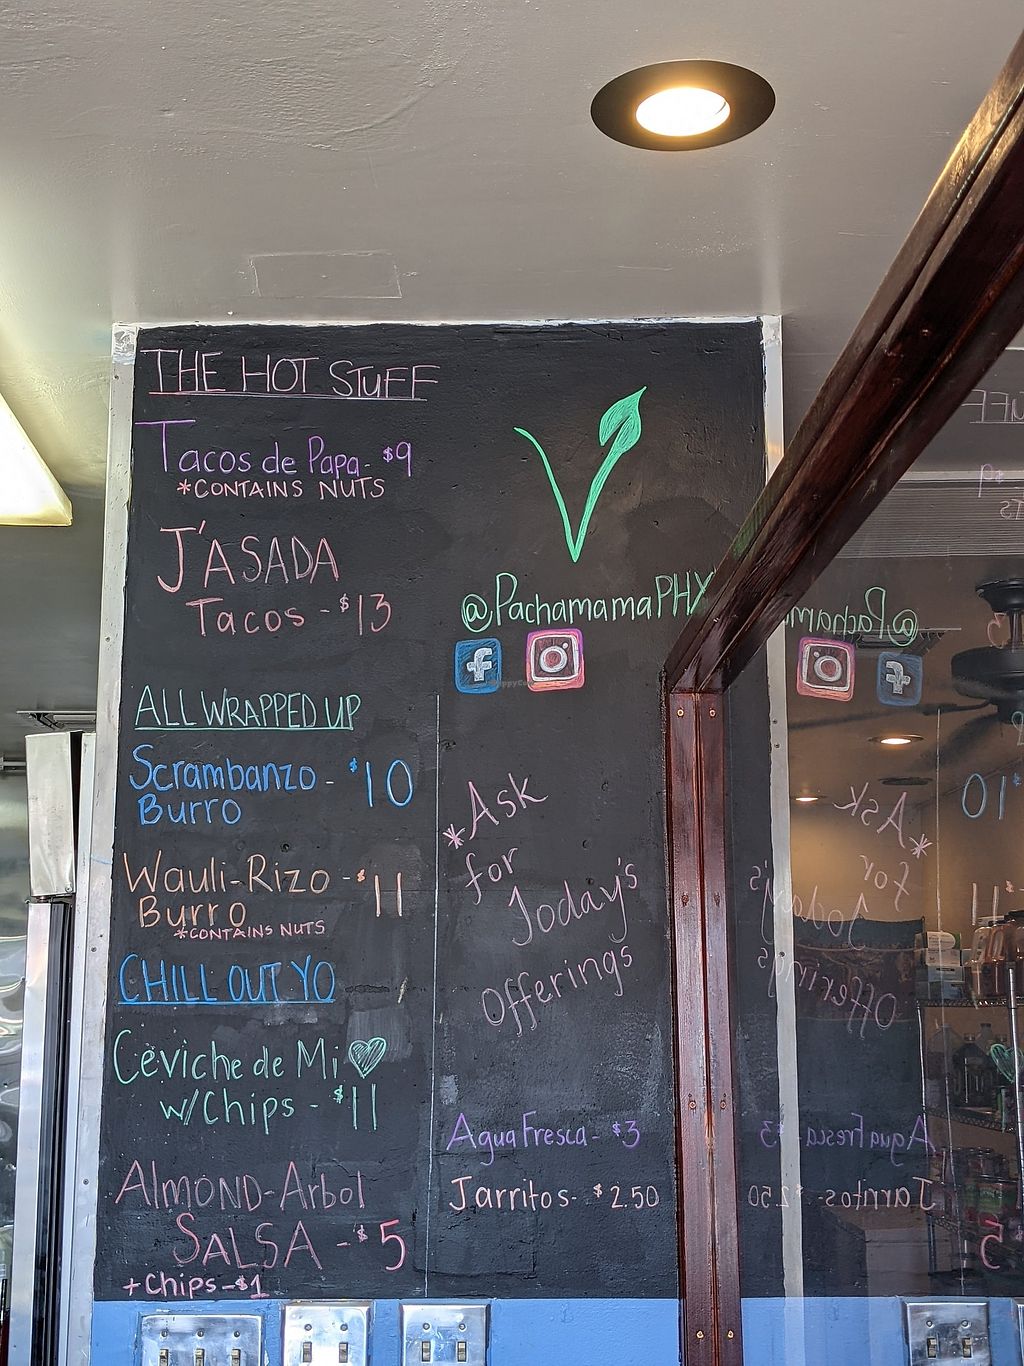 THE HOT STUFF
Tacos de Papa- $9
*CONTAINS NUTS
J'ASADA
Tacos - $13
ALL WRAPPED UP
Scrambanzo - $10
Burro
Wauli-Rizo - $11
Burro
*CONTAINS NUTS
CHILL OUT YO
Ceviche de Mi
w/Chips - $11
Almond-Arbol
SALSA - $5
+ Chips - $1
@PachamamaPHX
*Ask
for
Today's
Offerings
Agua Fresca - $3
Jarritos - $2.50